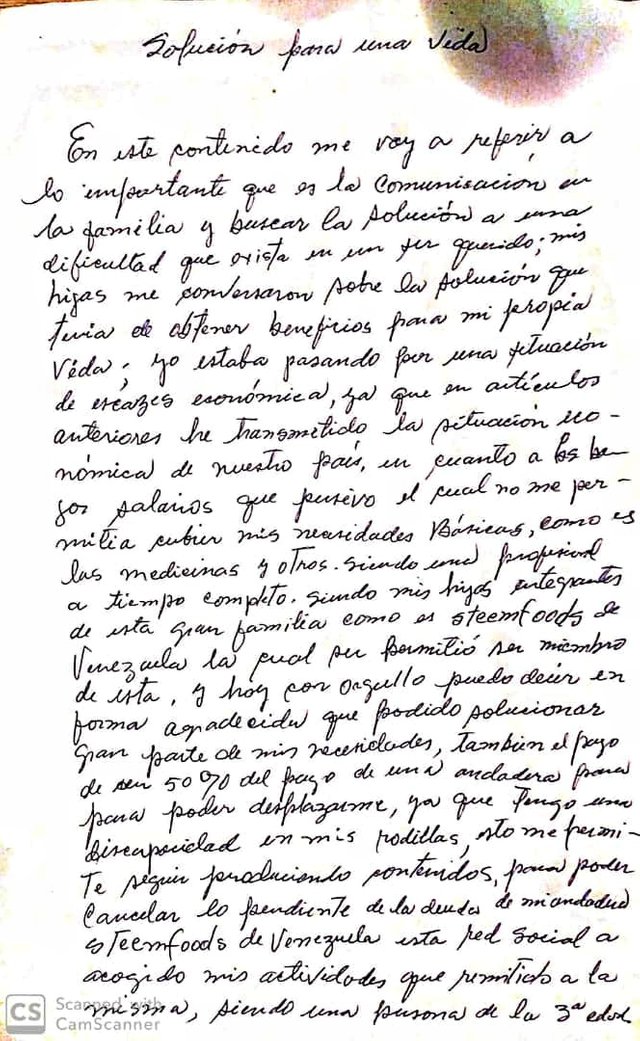 Solución para una vida
En este contenido me voy a referir a
lo importante que es la comunicación en
la familia y buscar la solución a una
dificultad que exista en un ser querido; mis
hijas me conversaron sobre la solución que
tenia de obtener beneficios para mi propia
vida; yo estaba pasando por una situación
de escazes económica, ya que en artículos
anteriores he transmitido la situación eco-
nómica de nuestro país, en cuanto a los ba-
jos salarios que percivo el cual no me per-
mitia cubrir mis necesidades Básicas, como es
las medicinas y otros. siendo una profesional
a tiempo completo. siendo mis hijas integrantes
de esta gran familia como es steemfoods de
Venezuela la cual permitió ser miembro
de esta, y hoy con orgullo puedo decir en
forma agradecida que podido solucionar
gran parte de mis necesidades, tambien el pago
de un 50% del pago de una andadera para
para poder desplazarme, ya que tengo una
discapacidad en mis rodillas, esto me permi-
te seguir produciendo contenidos, para poder
cancelar lo pendiente de la deuda de mi
steemfoods de Venezuela esta red social a
acogido mis actividades que remitido a la
misma, siendo una persona de la 3ª edad
CS Scanned with
CamScanner